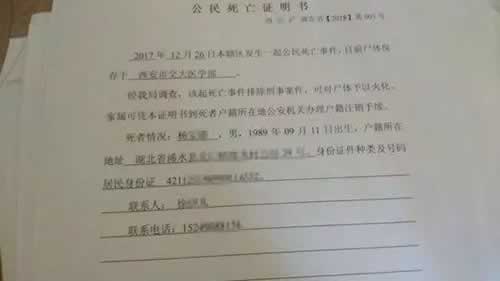 公民死亡证明书
【2018】第005号
2017 年 12 月 26日本辖区发生一起公民死亡事件,目前尸体保
存于 西安市交大医学部 。
经我局调查,该起死亡事件排除刑事案件,可对尸体予以火化。
家属可凭本证明书到死者户籍所在地公安机关办理户籍注销手续。
死者情况: ,男,1989 年 09 月 11 日出生,户籍所在
地址 湖北省浠水县 号。身份证件种类及号码
居民身份证 4211
联系人:
联系电话: